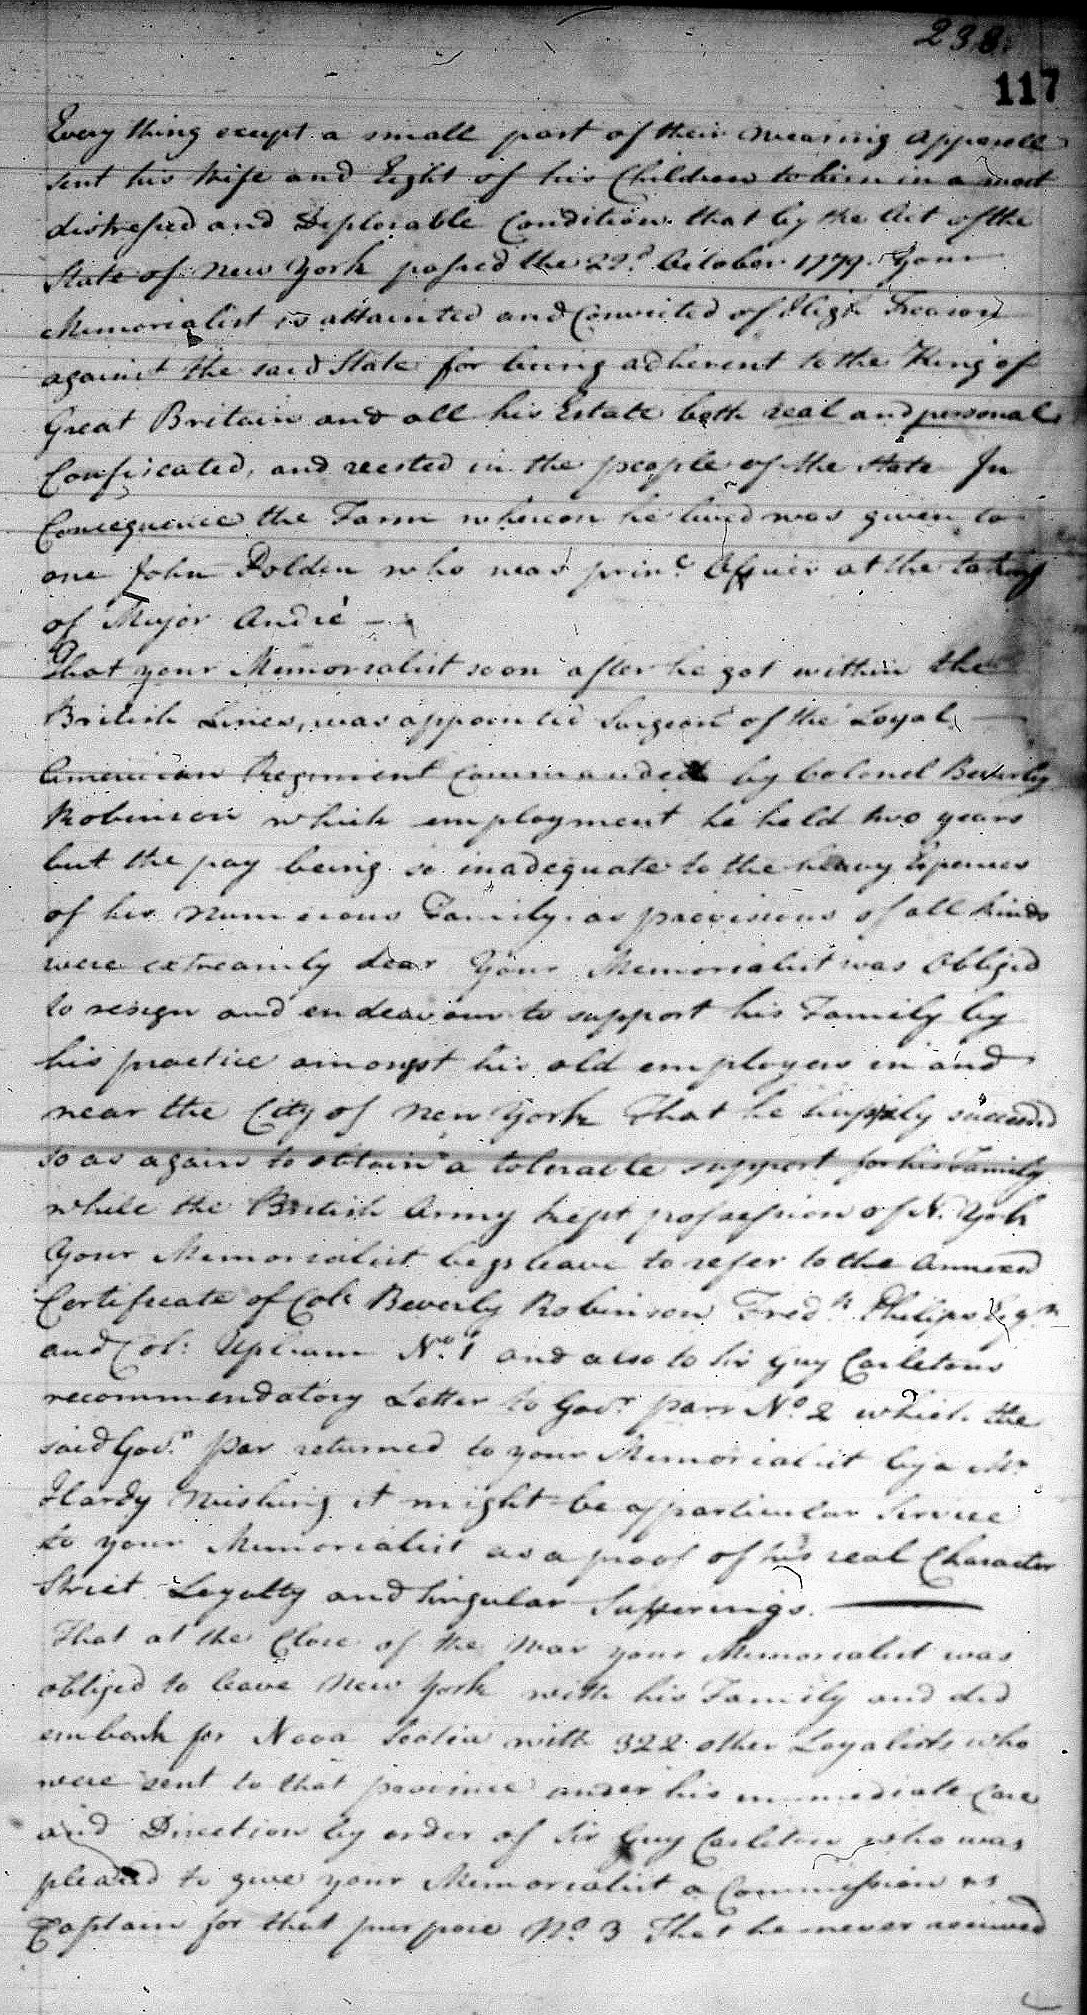 238.
117
Every thing except a small part of their wearing apparell
sent his Wife and Eight of his Children to him in a most
distressed and Deplorable Condition. that by the Act of the
State of New York passed the 22d October 1779. Your
Memorialist is attainted and Convicted of High Treason
against the said State for being adherent to the King of
Great Britain and all his Estate both real and personal
Confiscated, and vested in the people of the State In
Consequence the Farm whereon he lived was given to
one John who was prinl. Officer at the taking
of Major André —
That your Memorialist soon after he got within the
British Lines, was appointed Surgeon of the Loyal
American Regiment Commanded by Colonel Beverly
Robinson which employment he held two years
but the pay being so inadequate to the heavy Expences
of his numerous Family. as provisions of all kinds
were extreamly dear Your Memorialist was Obliged
to resign and endeavour to support his Family by
his practice amongst his old employers in and
near the City of New York That he happily succeeded
so as again to obtain a tolerable support for his Family
while the British Army kept possession of N. York
Your Memorialist begs leave to refer to the Annexed
Certificate of Col. Beverly Robinson Fredk. Philips Esqr.
and Col: Upham No. 1 and also to Sir Guy Carletons
recommendatory Letter to Govr. Parr No. 2 which the
said Govr. Par returned to your Memorialist by a Mr.
Hardy wishing it might be of particular Service
to your Memorialist as a proof of his real Character
Strict Loyalty and Singular Sufferings. —
That at the Close of the War your Memorialist was
obliged to leave New York with his Family and did
embark for Nova Scotia with 322 other Loyalists who
were sent to that province under his immediate Care
and Direction by order of Sir Guy Carleton who was
pleased to give your Memorialist a Commission as
Captain for that purpose No. 3 That he never received